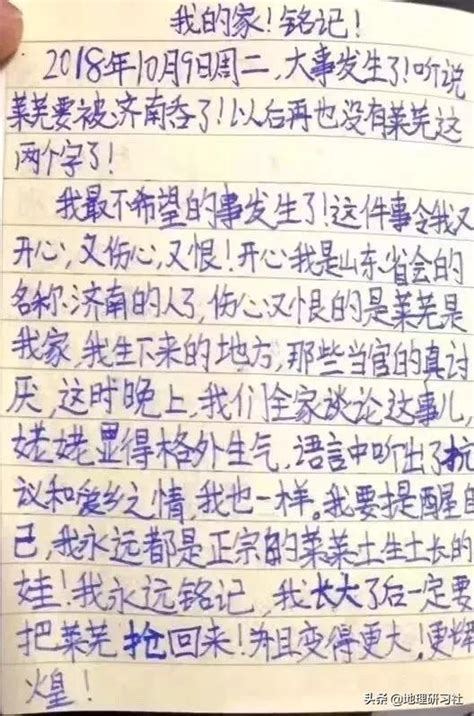 我的家！铭记！
2018年10月9日周二，大事发生了！听说
莱芜要被济南吞了！以后再也没有莱芜这
两个字了！
我最不希望的事发生了！这件事令我又
开心，又伤心，又恨！开心我是山东省会的
名称·济南的人了，伤心又恨的是莱芜是
我家，我生下来的地方，那些当官的真讨
厌，这时晚上，我们全家谈论这事儿，
姥姥显得格外生气，语言中听出了抗
议和爱乡之情，我也一样。我要提醒自
己，我永远都是正宗的莱芜土生土长的
娃！我永远铭记，我长大了后一定要
把莱芜抢回来！并且变得更大！更辉
煌！
头条@地理研习社